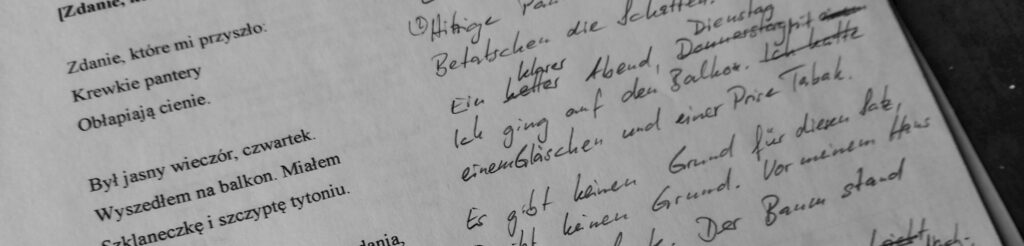 [Zdanie,
Zdanie, które mi przyszło:
Krewkie pantery
Obłapiają cienie.
Był jasny wieczór, czwartek.
Wyszedłem na balkon. Miałem
Szklaneczkę i szczyptę tytoniu.
① Hitzige
Betatschen die Schatten.
klarer Dienstag
Ein hetter Abend, Donnerstag, mit einem
Ich ging auf den Balkon. Ich hatte
einem Gläschen und einer Prise Tabak.
Es gibt keinen Grund für diesen Satz,
keinen Grund. Vor meinem Haus
Der Baum stand